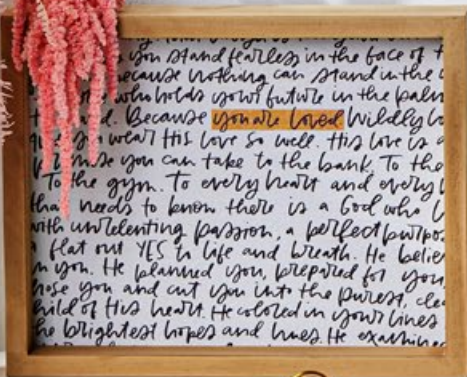 you stand fearless in the face of
because nothing can stand in the
who holds your future in the palm
Because you are loved Wildly
you wear His love so well. His love is a
you can take to the bank. To the
To the gym. To every heart and every
that needs to know there is a God who
with unrelenting passion, a perfect purpo
a flat out YES to life and breath. He believ
in you. He planned you, prepared for you
hose you and cut you into the purest, cle
hild of His heart. He colored in your lines
he brightest hopes and hues. He examine